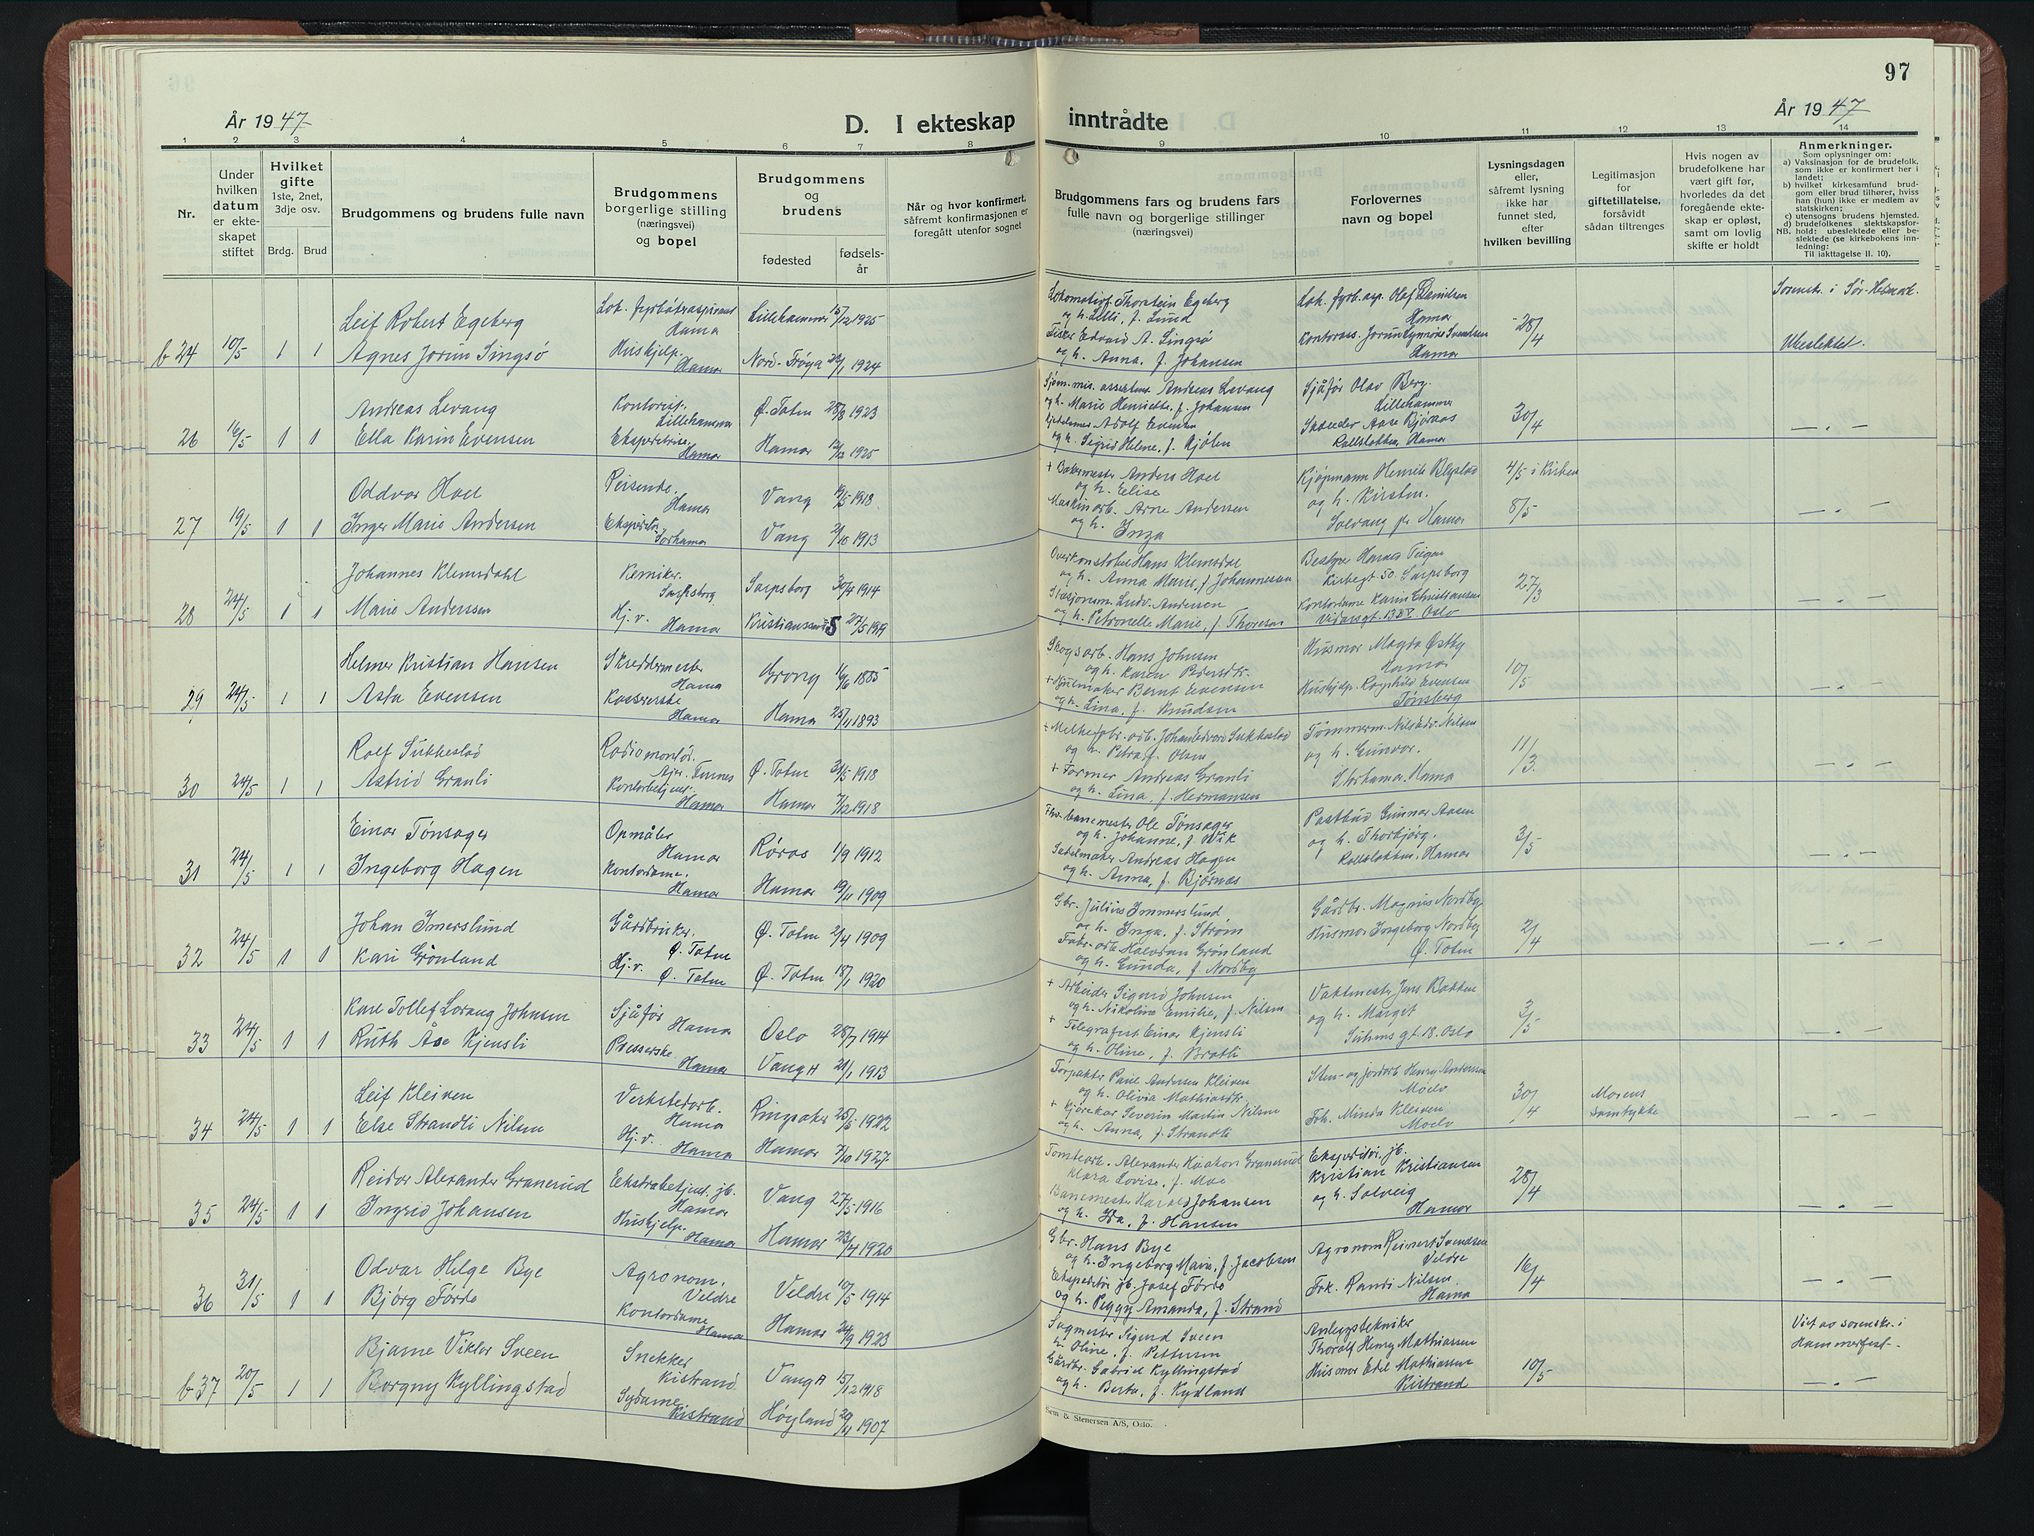 97
År 1947
D. I ekteskap
inntrådte
År 1947
1 2 3 4 5 6 7 8
9 10 11 12 13 14
Nr.
Under
hvilken
datum
er ekte-
skapet
stiftet
Hvilket
gifte
1ste, 2net,
3dje osv.
Brdg. Brud
Brudgommens og brudens fulle navn
Brudgommens
borgerlige stilling
(næringsvei)
og bopel
Brudgommens
og
brudens
fødested
fødsels-
år
Når og hvor konfirmert,
såfremt konfirmasjonen er
foregått utenfor sognet
Brudgommens fars og brudens fars
fulle navn og borgerlige stillinger
(næringsvei)
Forlovernes
navn og bopel
Lysningsdagen
eller,
såfremt lysning
ikke har
funnet sted,
efter
hvilken bevilling
Legitimasjon
for
giftetillatelse,
forsåvidt
sådan tiltrenges
Hvis nogen av
brudefolkene har
vært gift før,
hvorledes da det
foregående ekte-
skap er opløst,
samt om lovlig
skifte er holdt
Anmerkninger.
Som oplysninger om:
a) Vaksinasjon for de brudefolk,
som ikke er konfirmert her i
landet;
b) hvilket kirkesamfund brud-
gom eller brud tilhører, hviss
han (hun) ikke er medlem av
statskirken;
c) utensogns brudens hjemsted.
d) brudefolkenes slektskapsfor-
NB. hold: ubeslektede eller be-
slektede (se kirkebokens inn-
ledning:
Til iakttagelse II. 10).
b 24 10/5 1 1
Leif Robert Egeberg
Agnes Jorun Singsø
Hamar
Hushjelp.
Hamar
Lillehammer 15/12 1925
Nord-Frøya 1924
Lokomotivf. Thorstein Egeberg
og h. Lilli, f. Lund
Fisker Edvard A. Singsø
og h. Anna, f. Johansen
Lok. fyrb. asp. Olaf Danielsen
Hamar
Hamar
28/4
Sorensk. i Sør-Hedmark.
Ubeslektet.
26 16/5 1 1
Andreas Levang
Ella Karin Evensen
Kontorist.
Lillehammer
Ekspeditrise
Hamar
Ø. Toten 28/8 1923
Hamar 1925
Andreas Levang
og h. Marie Henriette, f. Johansen
Adolf Evensen
og h. Sigrid Helene, f. Kjølen
Sjåfør Olav Berg.
Lillehammer
Aase Bjørnaas
Hamar
30/4
— „ —
27 19/5 1 1
Oddvar Hoel
Inger Marie Andersen
Hamar
Storhamar
Vang 1918
Vang 1913
+ Bakermester Anders Hoel
og h. Elise
Maskinarb. Arne Andersen
og h. Inga
Kjøpmann Henrik
og h. Kirsten.
Solvang pr. Hamar
4/5 i kirken
8/5
— „ —
28 24/5 1 1
Johannes Klemsdal
Marie Anderssen
Kemiker.
Sarpsborg
Hj.v.
Hamar
Sarpsborg 30/4 1914
Kristianssund S 27/5 19
Overkonstabel Hans Klemsdal
og h. Anna Marie, f. Johannesen
Stasjonsm. Ludv. Andersen
og h. Petronelle Marie, f. Thoresen
Bestyr Harald Teigen
Kirkegt 50. Sarpsborg
Kontordame Karin Christiansen
Oslo
27/3
— „ —
29 24/5 1 1
Helmer Kristian Hansen
Asta Evensen
Skreddermester
Hamar
Kassererske
Hamar
Grong 16/6 1885
Hamar 25/11 1893
Skogsarb. Hans Johnsen
og h. Karen Pedersdtr.
+ Hjulmaker Bernt Evensen
og h. Lina, f. Knudsen
Husmor Magda Østby
Hamar
Hushjelp Ragnhild Evensen
Tønsberg
10/5
— „ —
30 24/5 1 1
Rolf Sukkestad
Astrid Granli
Radiomontør.
Kontorbetjent.
Hamar
Ø. Toten 31/5 1918
Hamar 7/12 1918
og h. Petra, f. Olsen
+ Former Andreas Granli
og h. Lina, f. Hermansen
og h. Gunvor.
Storhamar. Hamar
11/3.
— „ —
31 24/5 1 1
Einar Tønsager
Ingeborg Hagen
Opmåler
Hamar
Kontordame.
Hamar
Røros 1/9 1912
Hamar 19/11 1909
Fhv. banemester Ole Tønsager
og h. Johanne, f. Wik
Sadelmaker Andreas Hagen
og h. Anna, f. Bjørnæs
Postbud Gunnar Aasen
og h. Thorbjørg.
Hamar
3/5
— „ —
32 24/5 1 1
Johan Imerslund
Kari Grønland
Gårdbruker.
Ø. Toten
Hj.v.
Ø. Toten
Ø. Toten 2/4 1909
Ø. Toten 18/1 1920
Gbr. Julius Immerslund
og h. Inga, f. Strøm
Fabr. arb. Halvdan Grønland
og h. Gunda, f. Nordby
Gårdbr. Magnus Nordby
Husmor Ingeborg Nordby
Ø. Toten
2/4
— „ —
33 24/5 1 1
Karl Tollef Lorang Johnsen
Ruth Åse Kjensli
Sjåfør
Hamar
Presserske.
Hamar
Oslo 28/7 1914
Vang H 21/1 1913
+ Arbeider Sigurd Johnsen
og h. Nikoline Emilie, f. Nilsen
+ Telegrafest Einar Kjensli
og h. Oline, f. Bratli
Vaktmester Jens Bakken
og h. Margit
gt. 18. Oslo
3/5
— „ —
34 24/5 1 1
Leif Kleiven
Else Strandli Nilsen
Verkstedarb.
Hamar
Hj.v.
Hamar
Ringsaker 25/5 1922
Hamar 7/10 1927
Paul Andersen Kleiven
og h. Olivia Mathiasdtr.
+ Kjørekar Severin Martin Nilsen
og h. Anna, f. Strandli
Sten- og jordarb. Henry Andersson
Moelv
Frk. Minda Kleiven
Moelv
30/4
Morens
samtykke
— „ —
35 24/5 1 1
Reidar Alexander Granerud
Ingrid Johansen
Ekstrabetjent. jb.
Hamar
Hushjelp.
Hamar
Vang 27/5 1916
Hamar 23/4 1920
Tomtearb. Alexander Haakon Granerud
Klara Lovise, f. Moe
Banemester Harald Johansen
og h. Ida, f. Hansen
Ekspeditør jb.
Kristian Kristiansen
og h. Solveig
Hamar
28/4
— „ —
36 31/5 1 1
Odvar Helge Bye
Bjørg Førde
Agronom.
Veldre
Kontordame
Hamar
Veldre 10/5 1914
Hamar 24/9 1923
Gbr. Hans Bye
og h. Ingeborg Marie, f. Jacobsen
Ekspeditør jb. Josef Førde
og h. Peggy Amanda, f. Strand
Agronom Reinert Svendsen
Veldre
Frk. Randi Nilsen.
Hamar
16/4
— „ —
b 37 20/5 1 1
Bjarne Viktor Sveen
Borgny Kyllingstad
Snekker
Kistrand.
Sydame
Kistrand
Vang H 15/12 1918
Høyland 20/11 1907
Sagmester Sigurd Sveen
h. Oline, f. Pettersen
Gårdbr. Gabriel Kyllingstad
og h. Berta, f. Kydland
Anleggstekniker
Thoralf Henry Mathiassen
Husmor Edel Mathiassen
Kistrand
10/5
Viet av sorenskr. i
Hammerfest.
— „ —
Sem & Stenersen A/S, Oslo.